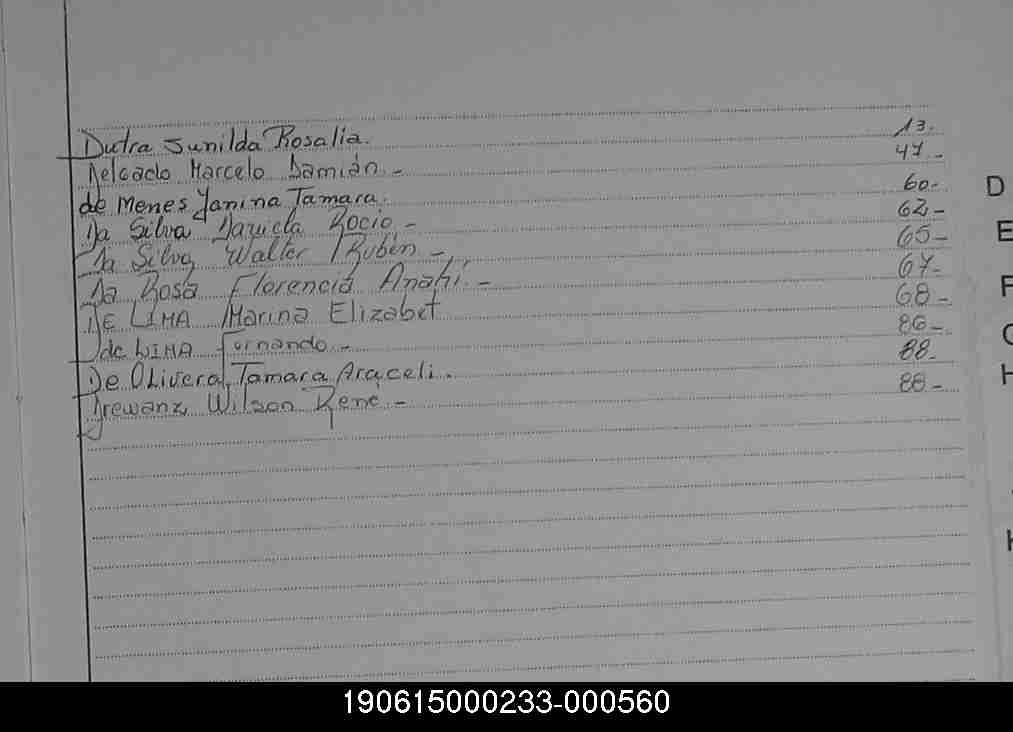 Dutra Junilda Rosalia. 13.
Delgado Marcelo Damián.- 47.-
de Menes Yanina Tamara. 60.-
Da Silva Daniela Rocio.- 62-
Da Silva Walter Rubén.- 65-
Da Rosa Florencia Anahi.- 67-
DE LIMA Marina Elizabet 68-
de LIMA Fernando.- 86-
De OLivera Tamara Araceli. 88-
Drewanz Wilson Rene.- 88-
D
E
F
H
190615000233-000560